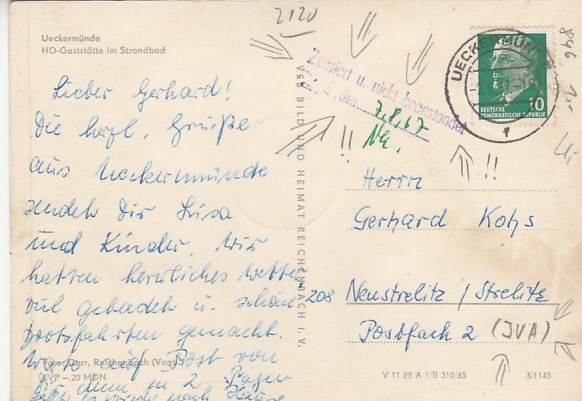 2120
Ueckermünde
HO-Gaststätte im Strandbad
Lieber Gerhard!
Die herzl. Grüße
aus Ueckermünde
sendet Dir Luisa
und Kinder. Wir
hatten herrliches Wetter,
viel gebadet u. schöne
Bootsfahrten gemacht.
Post von
in 2 Tagen
nach Hause
Foto: Darr, Reichenbach (Vogtl.)
EVP -,20 MDN
VEB BILD UND HEIMAT REICHENBACH I. V.
Zensiert u. nicht beanstandet
den
7.8.67
!!
!!
UECKERMÜNDE
DEUTSCHE
DEMOKRATISCHE REPUBLIK
10
846
Herrn
Gerhard Kohs
208 Neustrelitz / Strelitz
Postfach 2 (JVA)
V 11 28 A 1/B 310/65
3/1145